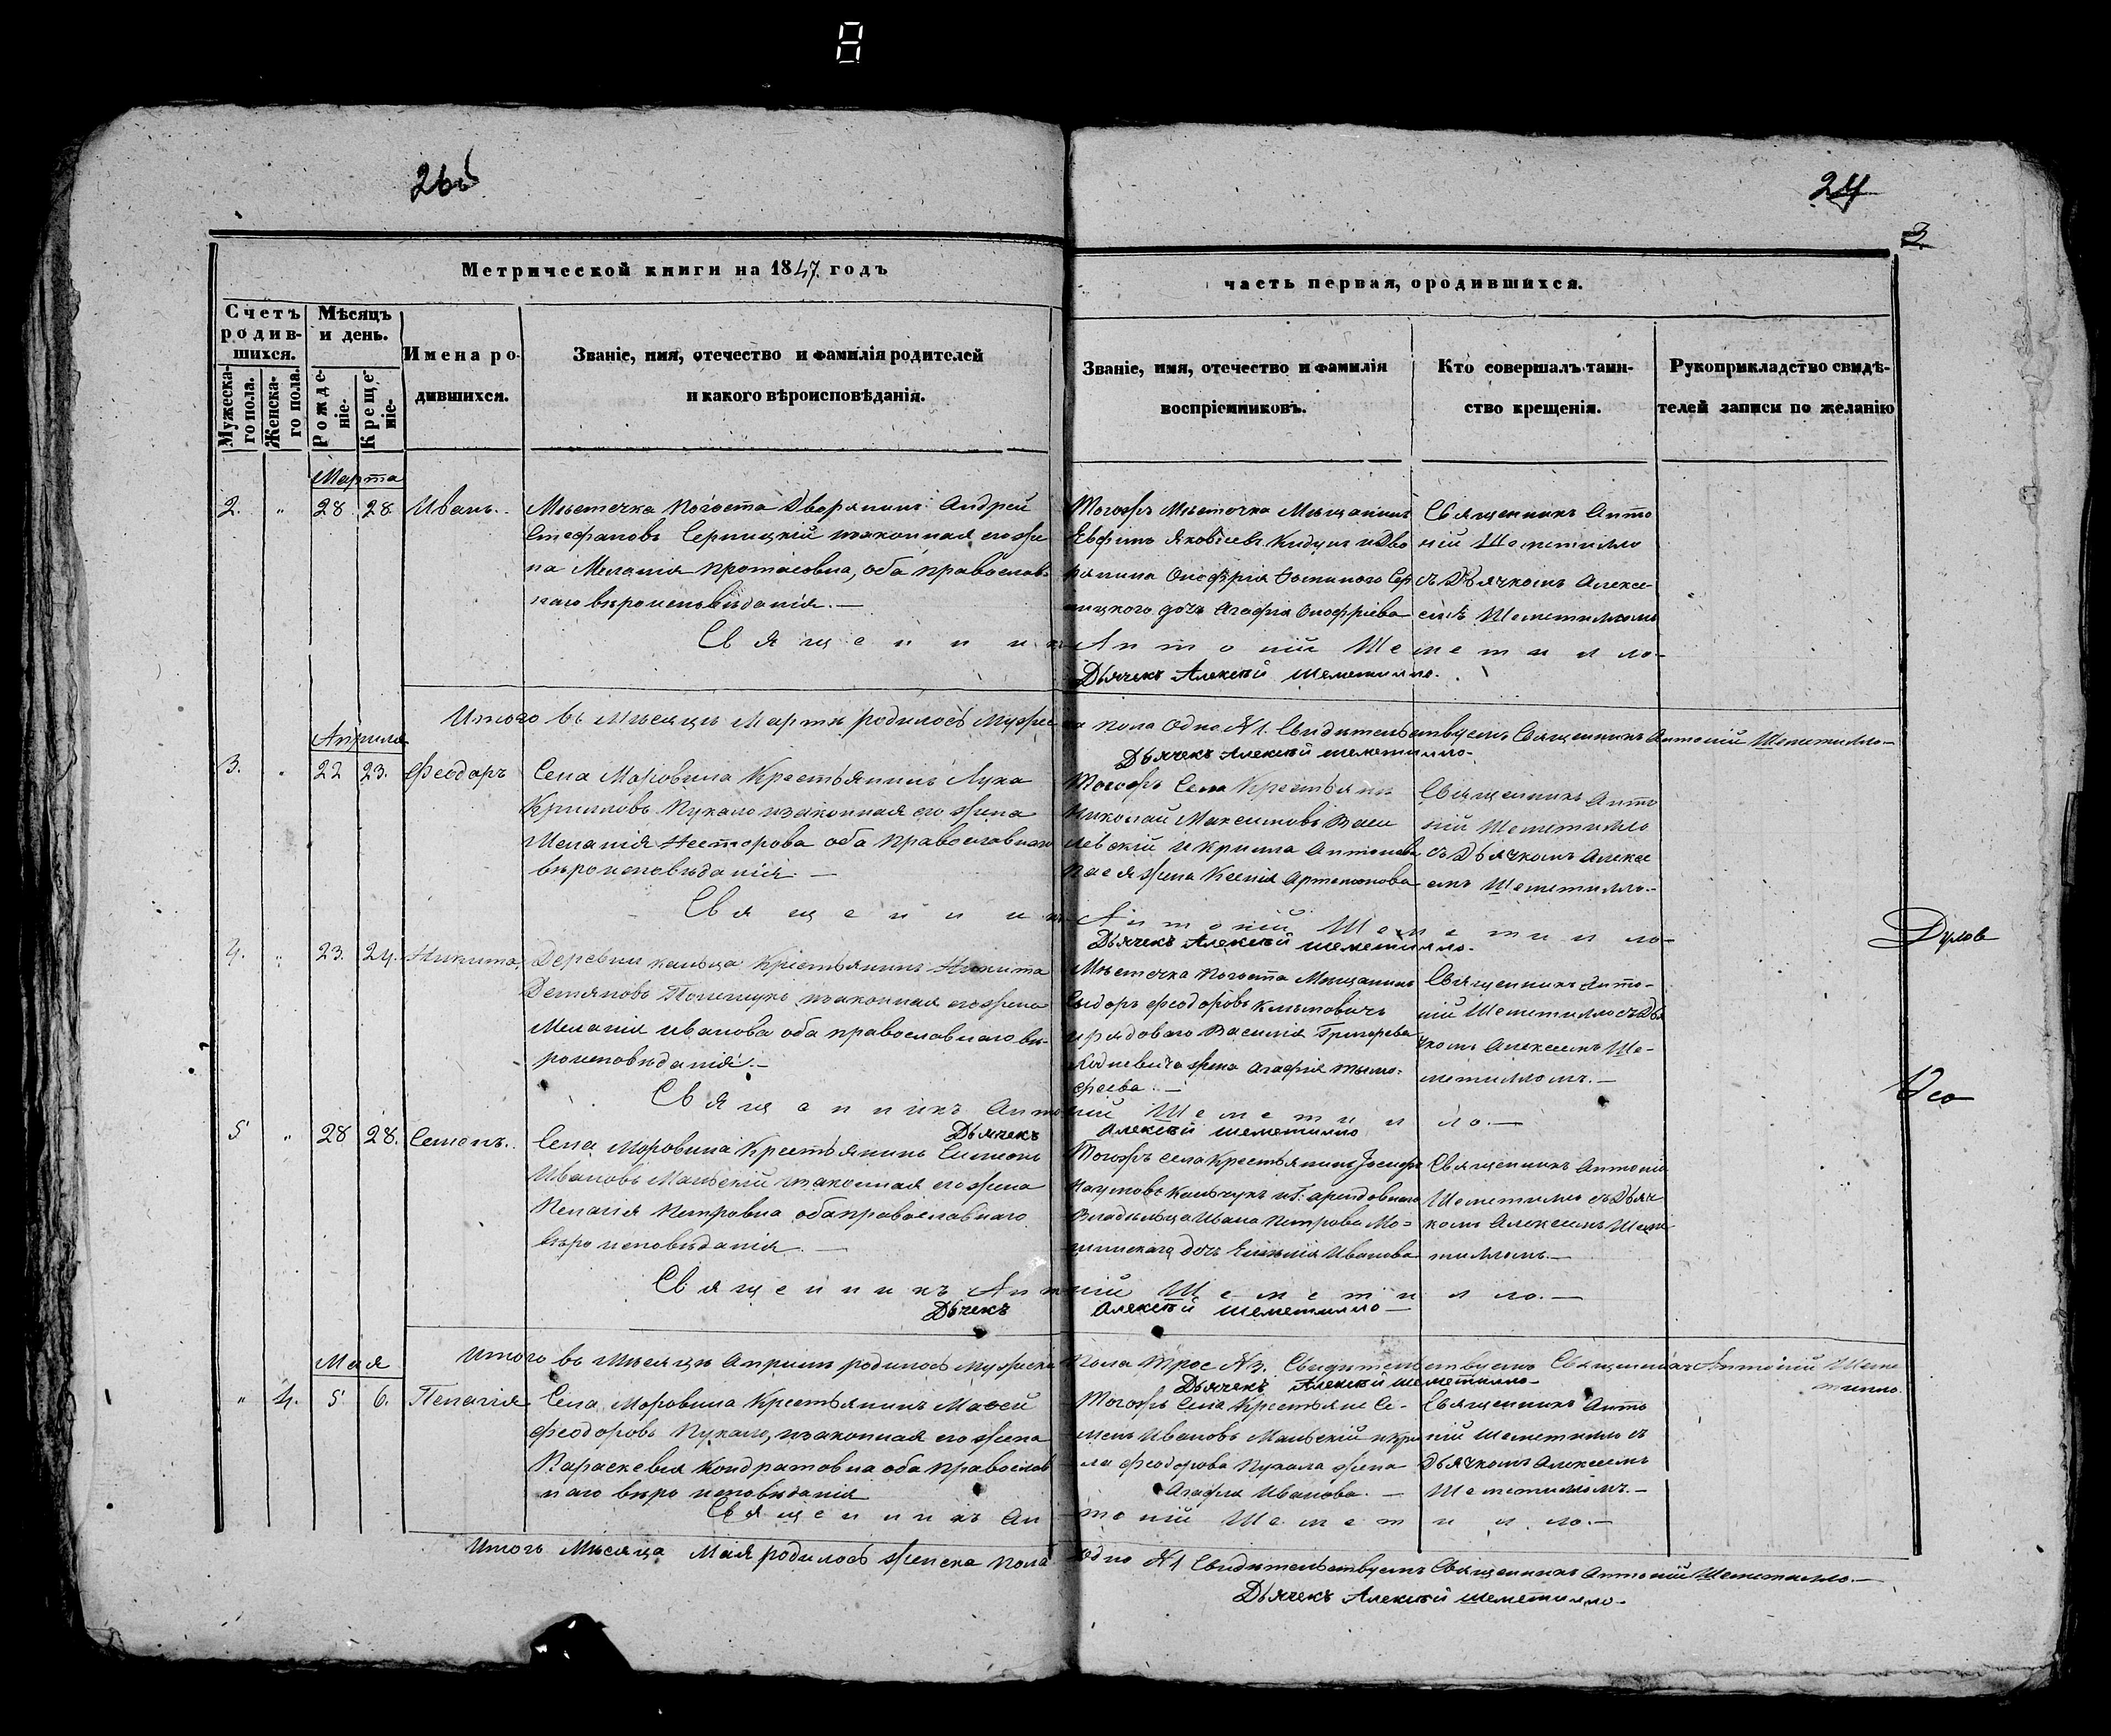 24
3
Метрической книги на 1847 годъ
часть первая, ородившихся.
Счетъ родив-шихся.
Мѣсяцъ и день.
Мужеска-го пола.
Женска-го пола.
Рожде-ніе.
Креще-ніе.
Имена ро-
дившихся.
Званіе, имя, отечество и фамилія родителей
и какого вѣроисповѣданія.
Званіе, имя, отечество и фамилія
воспріемниковъ.
Кто совершалъ таин-
ство крещенія.
Рукоприкладство свидѣ-
телей записи по желанію
Марта
2. " 28 28 Иванъ.
Мѣстечка Погоста Дворянинъ Андрей
Стефановъ Серницкій изаконная его же
на Меланія Протасовна, оба православ-
наго вѣроисповѣданія.—
Тогожъ Мѣстечка Мѣщанинъ
Евфимъ Яковлевъ и Дво
рянина Онофрія Сер
ницкого дочь Агафія Онофріева
Священникъ Анто
ній Шеметилло
съ Дьячкомъ Алексе-
емъ Шеметилломъ
Священникъ Антоній Шеметилло-
Дьячекъ Алексѣй Шеметилло.
Итого въ Мѣсяцѣ Мартѣ родилось Мужеска пола Одно №1. Свидѣтельствуемъ Священникъ Антоній Шеметилло—
Дьячекъ Алексѣй Шеметилло-
Апрѣля
3. " 22 23. Феодоръ
Села Моровина Крестьянинъ Лука
Пукало изаконная его жена
Меланія Несторова оба православнаго
вѣроисповѣданія —
Тогожъ Села Крестьян
Николай Максимовъ
и Антонова
жена Ксенія
Священникъ Анто
ній Шеметилло
съ Дьячкомъ Алексе
емъ Шеметилло-
Священникъ Антоній Шеметилло-
Дьячекъ Алексѣй Шеметилло-
4. " 23. 24. Никита
Деревни Крестьянинъ Никита
изаконная его жена
Меланія Иванова оба православнаго вѣ-
роисповѣданія.—
Мѣстечка Погоста Мещанинъ
Феодоровъ Климовичъ
и рядоваго Василія Григорьева
жена Агафія Тимо-
феева.—
Священникъ Анто-
ній Шеметилло съ Дья
чкомъ Алексеемъ Ше-
метилломъ.—
Священникъ Антоній Шеметилло.—
Дьячекъ Алексѣй Шеметилло
5 " 28 28. Семенъ.
Села Моровина Крестьянинъ Симеонъ
Ивановъ Маньскій изаконная его жена
Пелагія Петровна оба православнаго
вѣроисповѣданія.—
Тогожъ села Крестьянинъ Іосифъ
Наумовъ
Владѣльца Ивана Петрова Мо-
дочь Иванова
Священникъ Антоній
Шеметилло съ Дьяч
комъ Алексеемъ Шеме
тилломъ—
Священникъ Антоній Шеметилло.—
Дьячекъ Алексѣй Шеметилло—
Итого въ Мѣсяцѣ Апрѣлѣ родилось Мужеска пола трое №3. Свидѣтельствуемъ Священникъ Антоній Шеме
тилло.
Дьячекъ Алексѣй Шеметилло-
Мая
" 4. 5 6. Пелагія
Села Моровина Крестьянинъ Матѳей
Феодоровъ Пукало, изаконная его жена
Параскевія Кондратовна оба православ
наго вѣроисповѣданія
Тогожъ Села Крестьяне Се-
менъ Ивановъ Маньскій и Кри
ла Феодорова Пукала жена
Агафія Иванова.—
Священникъ Анто
ній Шеметилло съ
Дьячкомъ Алексеемъ
Шеметилломъ.—
Священникъ Антоній Шеметилло.—
Итого Мѣсяца Мая родилось женска пола одно №1 Свидѣтельствуемъ Священникъ Антоній Шеметилло.—
Дьячекъ Алексѣй Шеметилло-